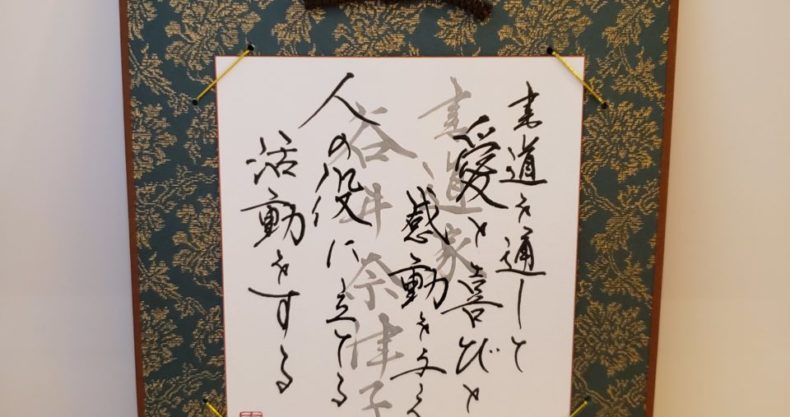 書道を通して
愛と喜びと
感動を与え
人の役に立てる
活動をする
書道家
谷井奈津子